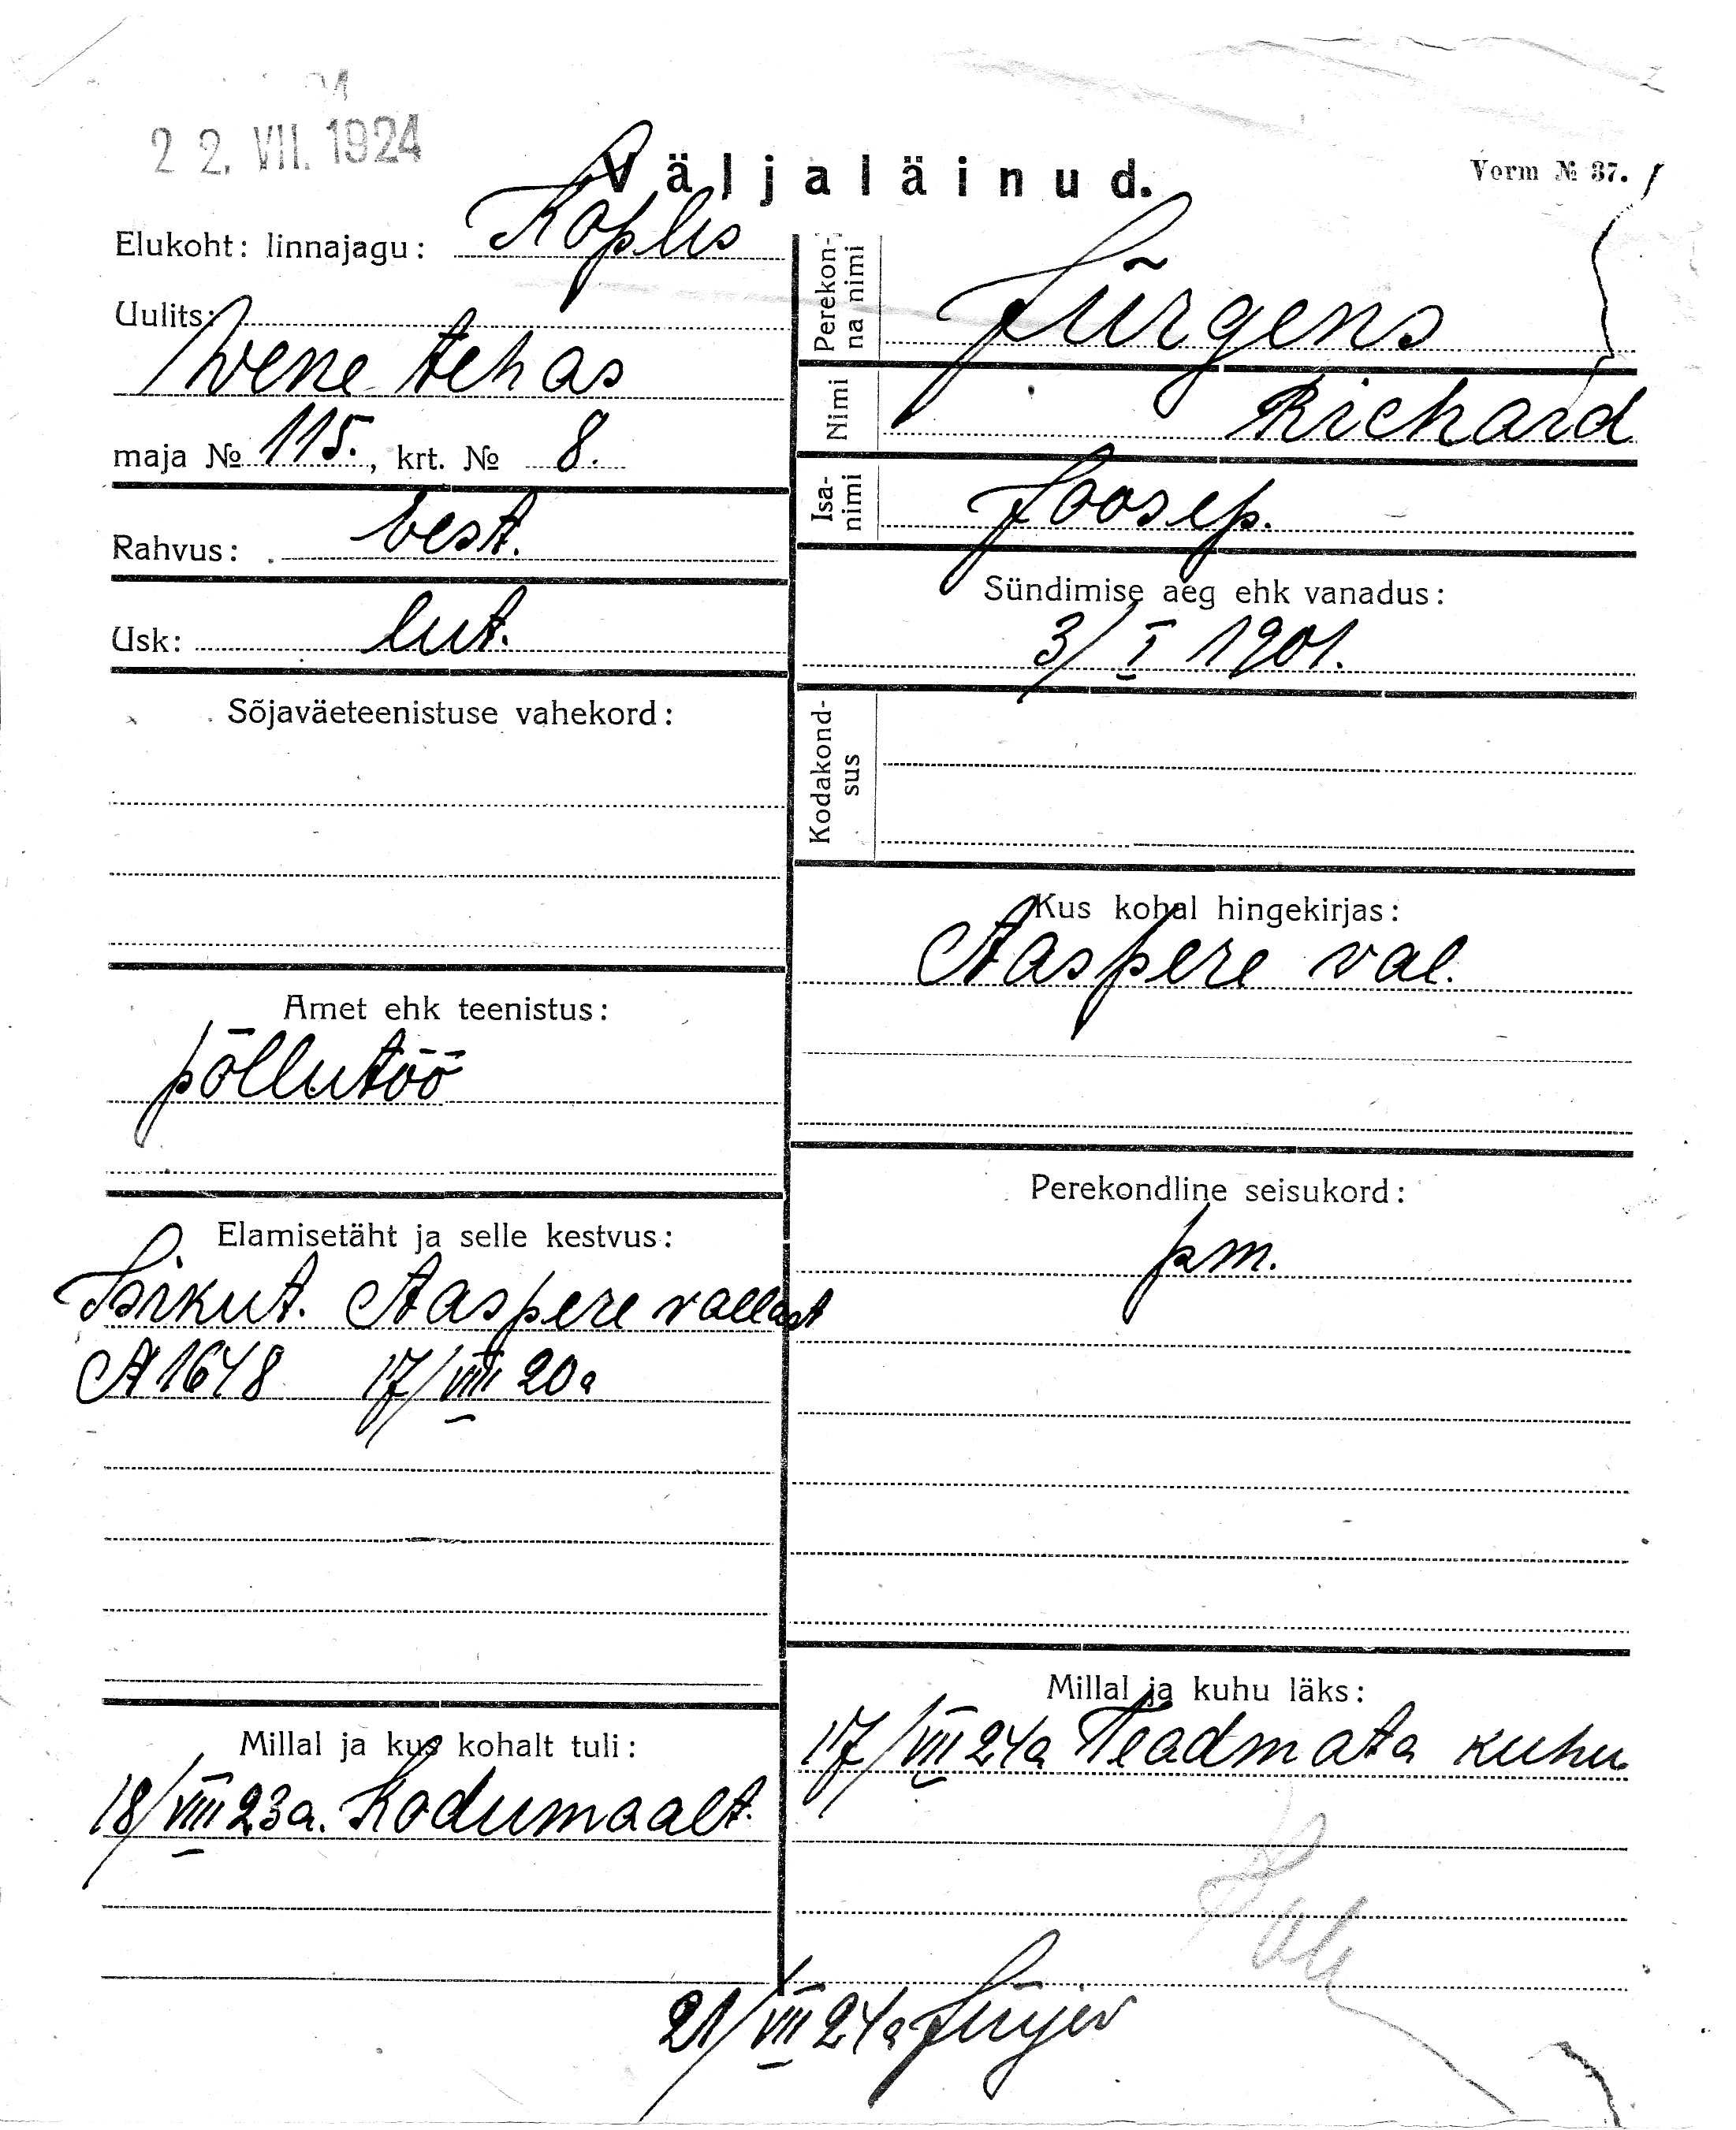 22. VII. 1924
Väljaläinud.
Vorm № 37.
Elukoht: linnajagu: Koplis
Uulits:
Wene tehas
maja № 115., krt. № 8.
Rahvus: eest.
Usk: lut.
Sõjaväeteenistuse vahekord:
Amet ehk teenistus:
põllutöö
Elamisetäht ja selle kestvus:
Isikut. Aaspere vallast
A 1648 17/VIII 20a
Millal ja kus kohalt tuli:
18/VIII 23a. Kodumaalt.
Perekon-
na nimi
Jürgens
Nimi
Richard
Isa-
nimi
Joosep.
Sündimise aeg ehk vanadus:
3/I 1901.
Kodakond-
sus
Kus kohal hingekirjas:
Aaspere val.
Perekondline seisukord:
pm.
Millal ja kuhu läks:
17/VII 24a Teadmata kuhu
21/VII 24a